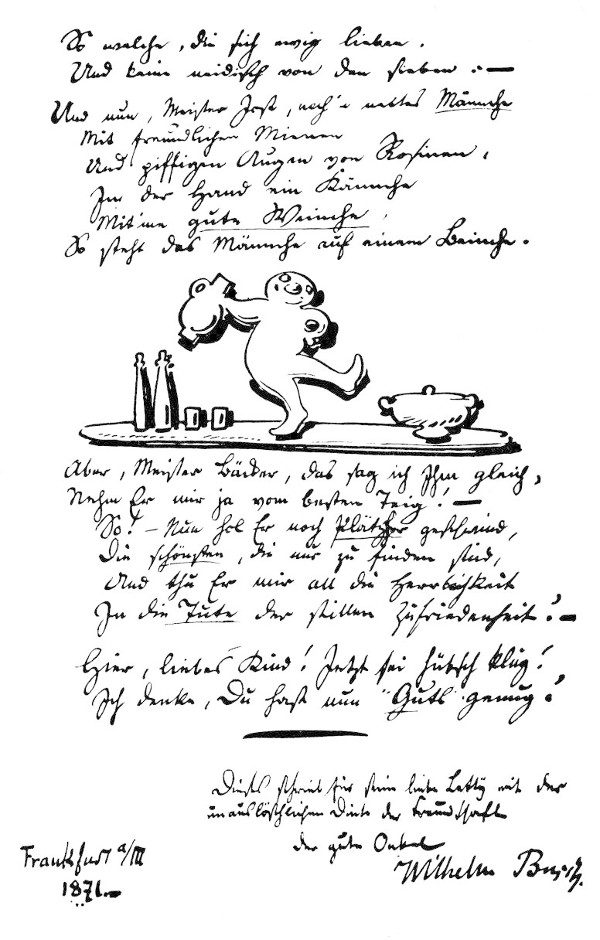 So welche, die sich ewig lieben.
Und keine neidisch von den sieben. –
Und nun, Meister Jost, noch'n nettes Männche
Mit freundlichen Mienen
Und pfiffigen Augen von Rosinen,
In der Hand ein Kännche
Mit'me gute Weinche,
So steht das Männche auf einem Beinche.
Aber, Meister Bäcker, das sag ich Ihm gleich,
Nehm Er mir ja vom besten Teig! –
So! – Nun hol Er noch Plätzher geschwind,
Die schönsten, die nur zu finden sind,
Und thu Er mir all die Herrlichkeit
In die Tute der stillen Zufriedenheit! –
Hier, liebes Kind! Jetzt sei hübsch klug!
Ich denke, Du hast nun "Guts" genug!
Dieses schrieb für seine liebe Letty mit der
unauslöschlichen Dinte der Freundschaft
der gute Onkel
Wilhelm Busch.
Frankfurt a/M
1871.–